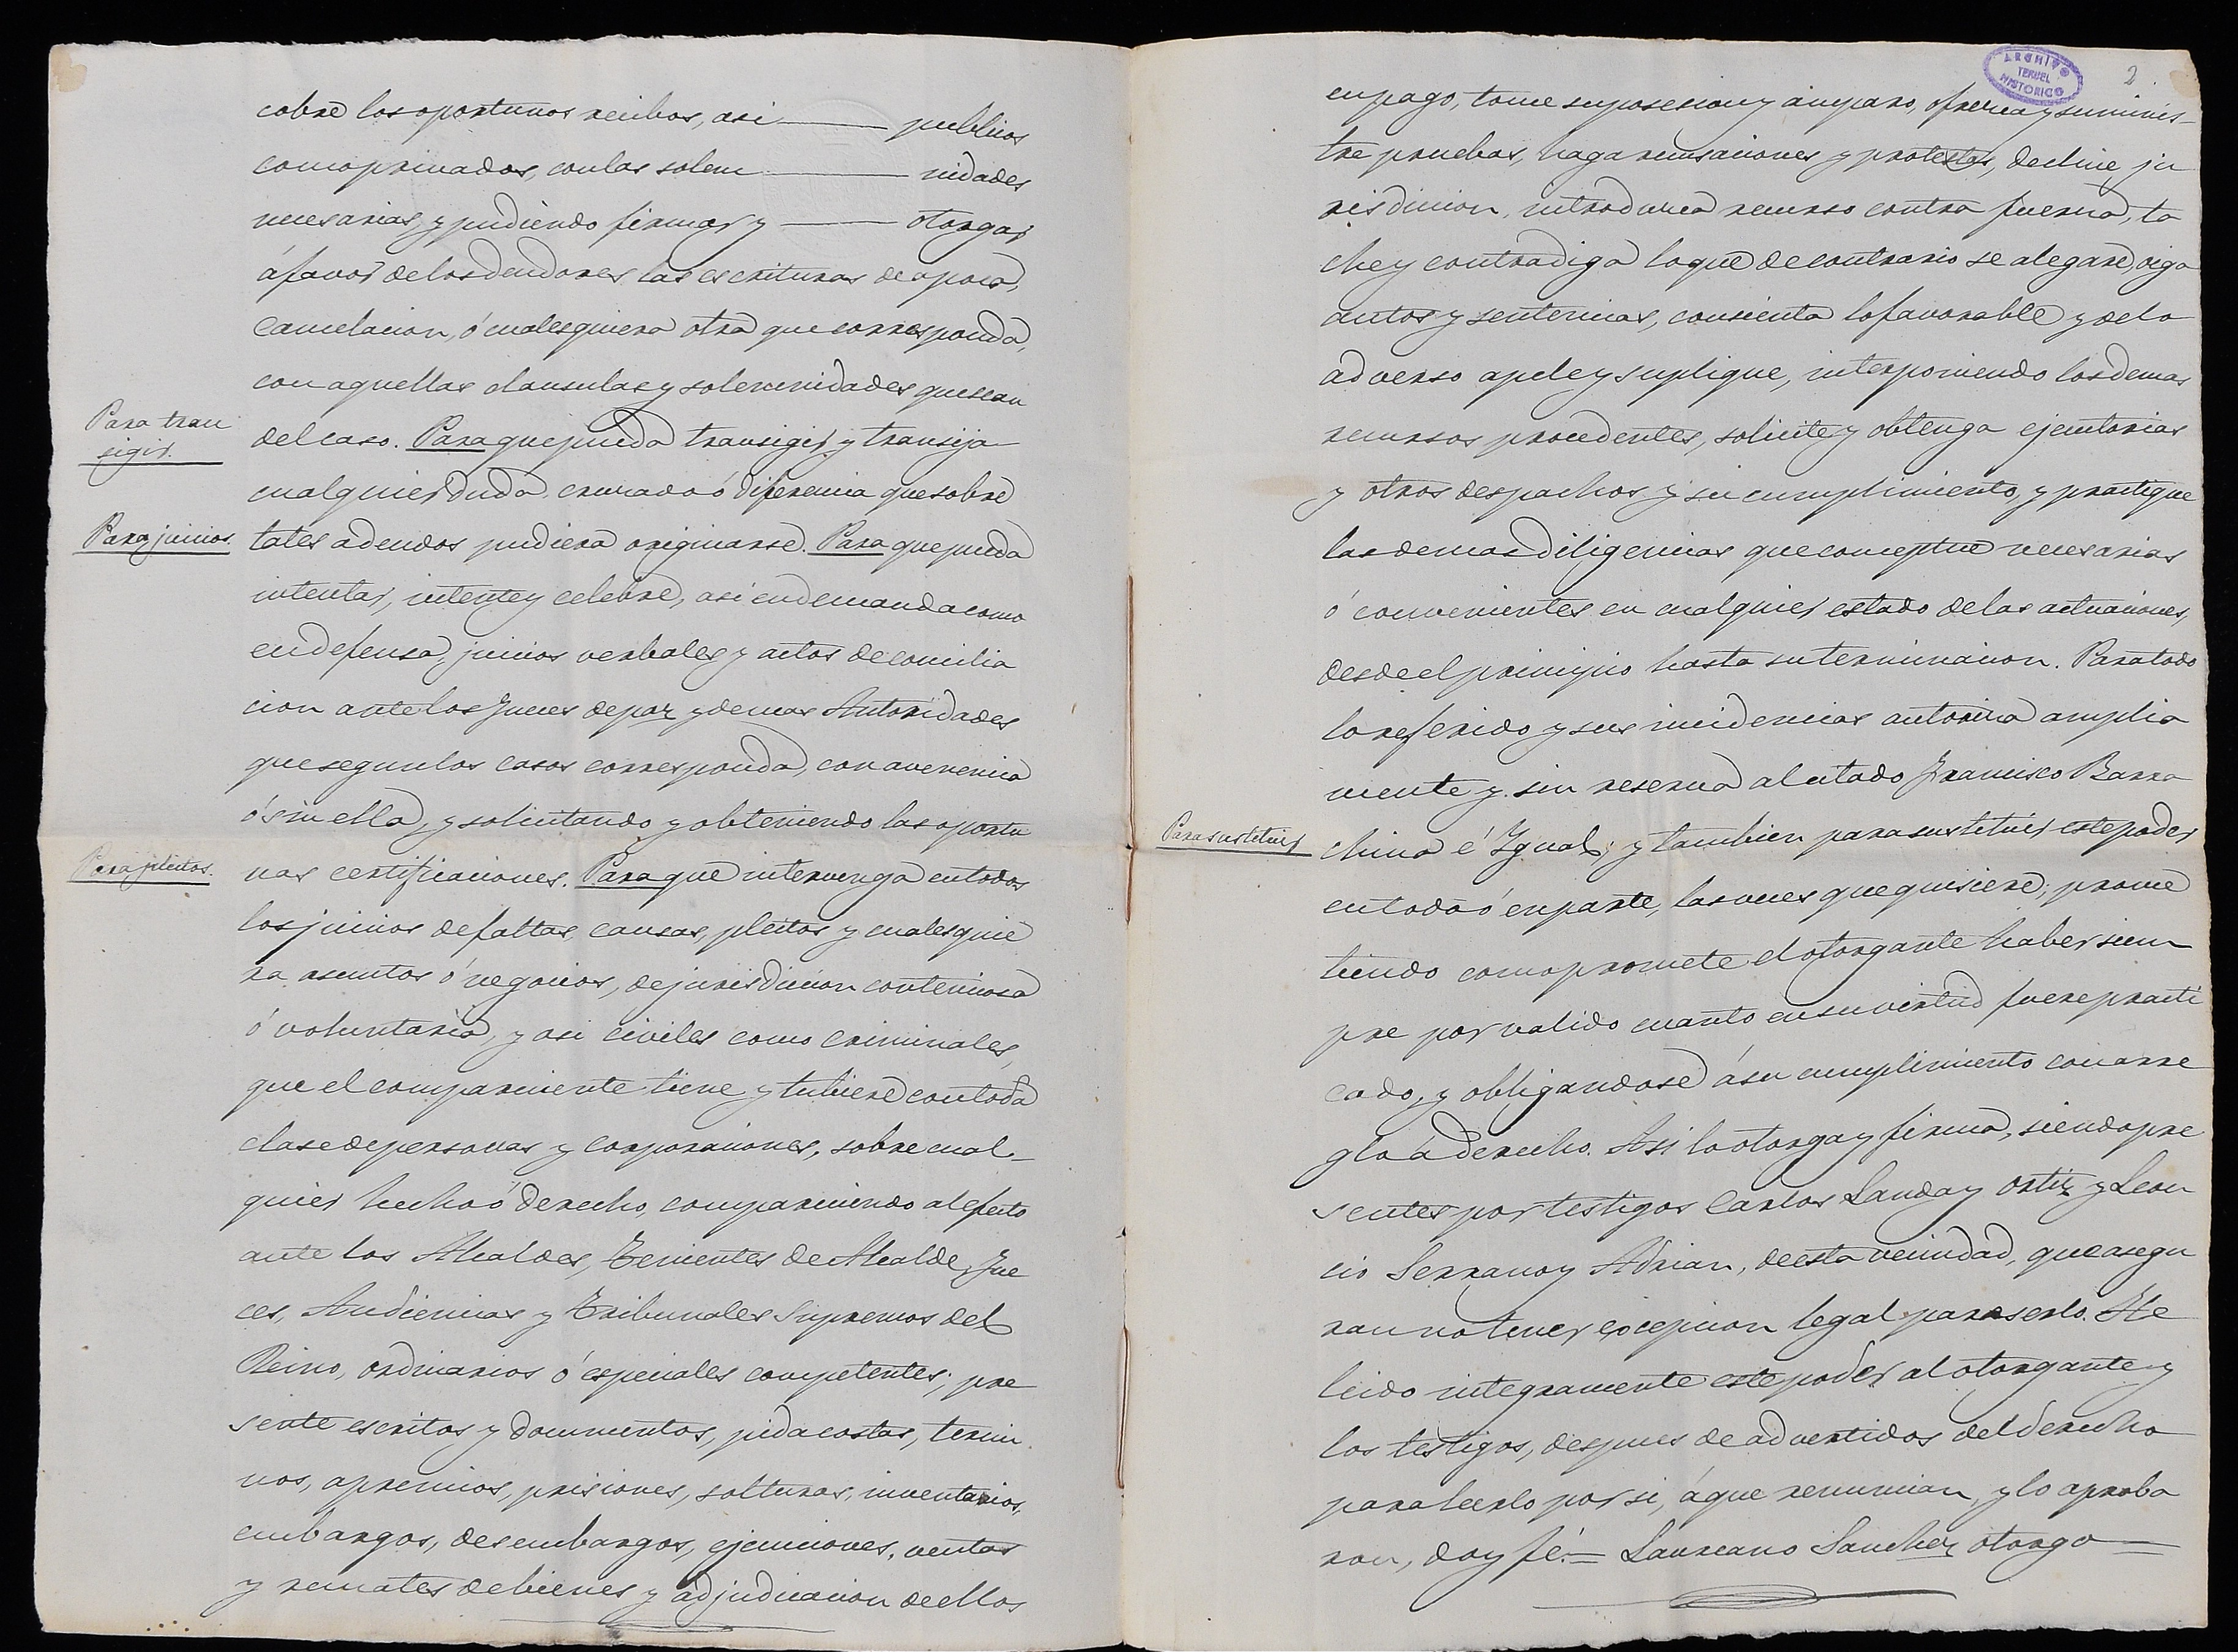 cobre los oportunos recibos, asi ——— publicos
como privados, con las solem ——— nidades
necesarias, y pudiendo firmar y ——— otorgar
á favor de los deudores, las escrituras de apoca,
cancelacion, ó cualesquiera otra que corresponda,
con aquellas clausulas y solemnidades que sean
Para tran
sigir.
del caso. Para que pueda transigir y transija
cualquier duda enunciada ó diferencia que sobre
Para juicios.
tales adeudos pudiera originarse. Para que pueda
intentar, intente y celebre, asi en demanda como
en defensa, juicios verbales y actos de concilia
cion ante los Jueces de paz y demas Autoridades
que segun los casos corresponda, con avenencia
ó sin ella, y solicitando y obteniendo las oportu
Para pleitos.
nas certificaciones. Para que intervenga en todos
los juicios de faltas, causas, pleitos y cualesquie
ra asuntos ó negocios, de jurisdicion contenciosa
ó voluntaria, y asi civiles como criminales,
que el compareciente tiene y tubiere con toda
clase de personas y corporaciones, sobre cual-
quier hecho ó derecho, compareciendo al efecto
ante los Alcaldes, Tenientes de Alcalde, Jue
ces, Audiencias y Tribunales Supremos del
Reino, ordinarios ó especiales competentes; pre
sente escritos y documentos, pida costas, termi
nos, apremios, prisiones, solturas, inventarios,
embargos, desembargos, ejecuciones, ventas
y remates de bienes y adjudicacion de ellos
ARCHIVO
TERUEL
HISTORICO
2.
en pago, tome su posesion y amparo, ofrezca y suminis-
tre pruebas, haga recusaciones y protestas, decline ju
risdicion, introduzca recurso contra fuerza, ta
che y contradiga lo que de contrario se alegare, oiga
autos y sentencias, consienta lo favorable y de lo
adverso apele y suplique, interponiendo los demas
recursos procedentes, solicite y obtenga ejecutorias
y otros despachos y su cumplimiento, y practique
las demas diligencias que conceptue necesarias
ó convenientes en cualquier estado de las actuaciones,
desde el principio hasta su terminacion. Para todo
lo referido y sus incidencias autoriza amplia
mente y sin reserva al citado Francisco Barra
Para sustituir
china é Ygual; y tambien para sustituir este poder
en todo ó en parte, las veces que quisiere; prome
tiendo como promete el otorgante haber siem
pre por valido cuanto en su virtud fuere practi
cado, y obligandose á su cumplimiento con arre
glo á derecho. Asi lo otorga y firma, siendo pre
sentes por testigos Carlos Landa y Ortiz y Leon
cio Serrano y Adrian, de esta vecindad, que asegu
ran no tener excepcion legal para serlo. He
leido integramente este poder al otorgante y
los testigos, despues de advertidos del derecho
para leerlo por si, á que renuncian, y lo aproba
ron, doy fé.= Laureano Sanchez otorgo—